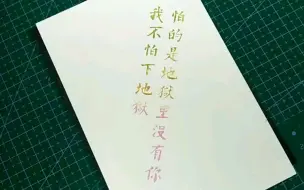 我不怕下地獄
怕的是地獄里沒有你